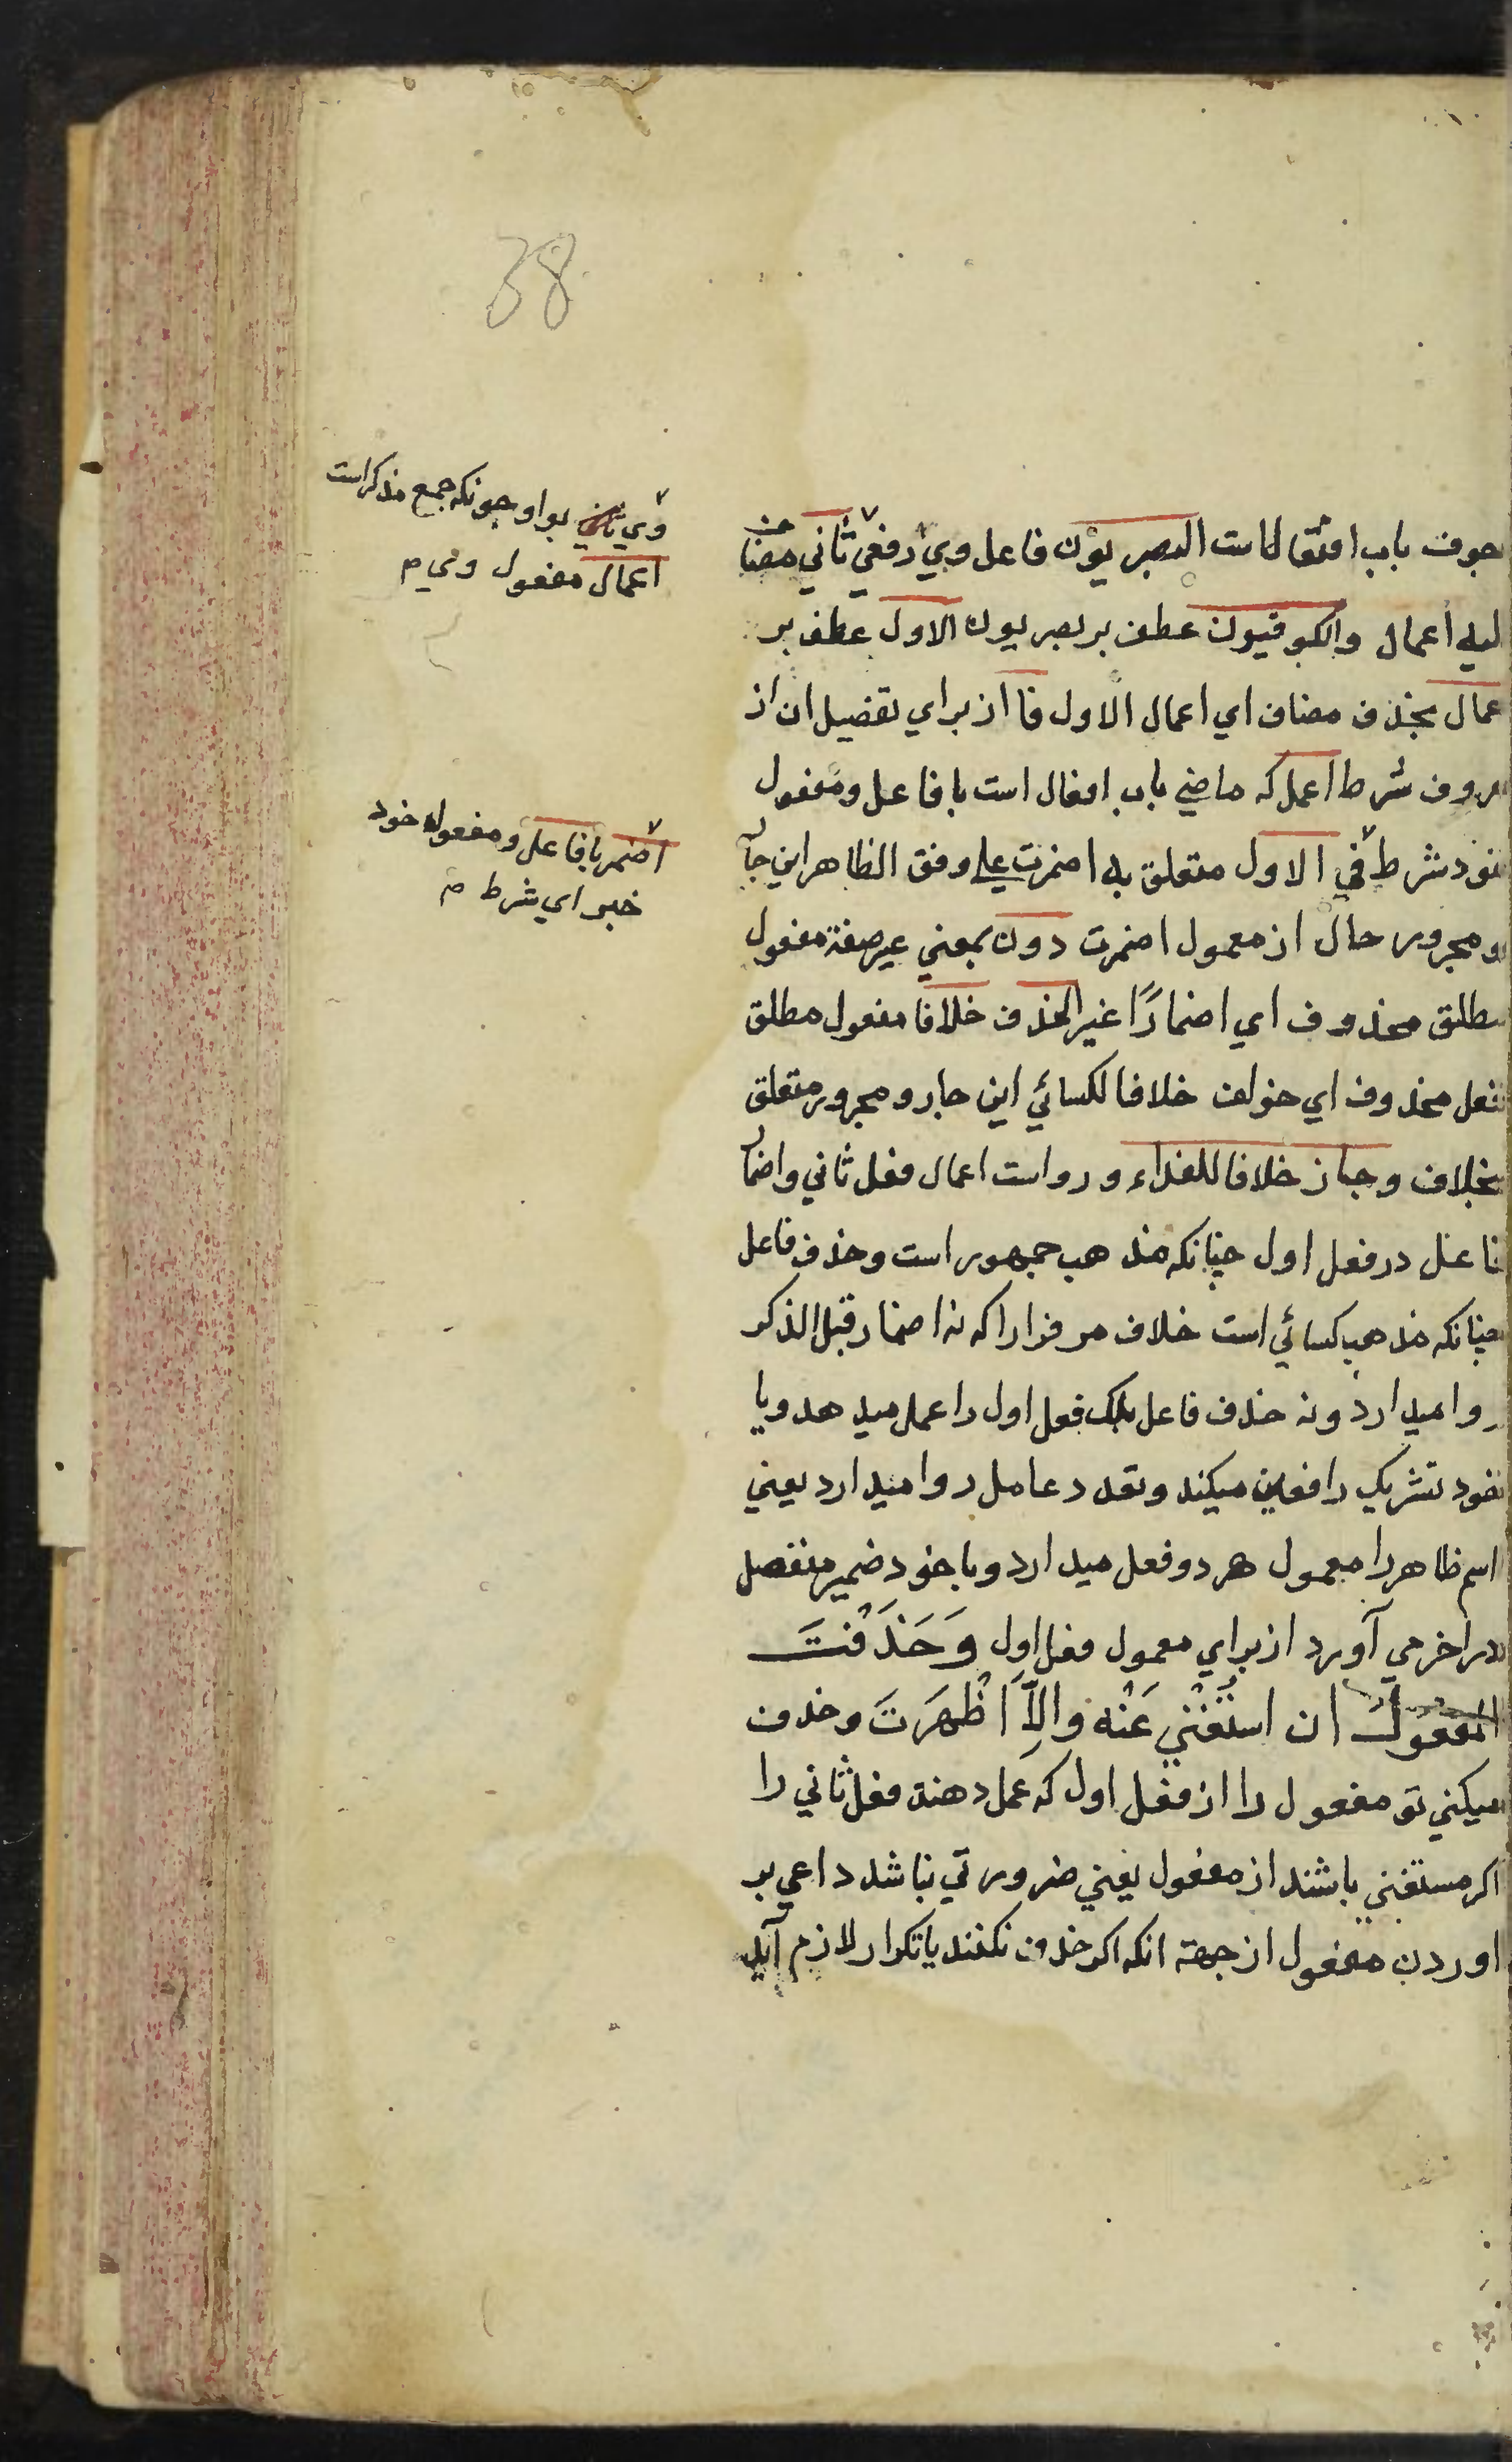 38
جوف باب افتعالست البصريون فاعل وي رفعي ثاني مضا
ليه اعمال والكوفيون عطف بر بصريون الاول عطف بر
عمال بحذف مضاف اي اعمال الاول فا از براي تفصيل ان از
حروف شرط اعمل كه ماضي باب افعال است با فاعل ومفعول
خود شرط في الاول متعلق به اضمرت علي وفق الظاهر اين جا
و مجرور حال از معمول اضمرت دون بمعني غير صفة مفعول
مطلق محذوف اي اضمارًا غير الحذف خلافا مفعول مطلق
فعل محذوف اي خولف خلافا لكسائي اين جار و مجرور متعلق
بخلاف وجاز خلافا للفراء و رواست اعمال فعل ثاني واضما
فاعل در فعل اول چنانكه مذهب جمهور است وحذف فاعل
چنانكه مذهب كسائي است خلاف مر فرا را كه نه اضمار قبل الذكر
روا ميدارد ونه حذف فاعل بلك فعل اول را عمل ميدهد ويا
خود تشريك رافعين ميكند وتعدد عامل روا ميدارد يعني
اسم ظاهر را معمول هر دو فعل ميدارد ويا خود ضمير منفصل
در اخر مي آورد از براي معمول فعل اول وَحَذَفْتَ
المفعول ان استُغْني عَنْه والاَّ اَظْهَرَتَ وحذف
ميكني تو مفعول را از فعل اول كه عمل دهند فعل ثاني را
اكر مستغني باشند از مفعول يعني ضرورتي نباشد داعي بر
اوردن مفعول از جهة انكه اكر حذف نكنند يا تكرار لازم آيد
وي بواو چونكه جمع مذكر است
اعمال مفعول وي م
اضمر با فاعل و مفعوله خود
خبر اي شرط م